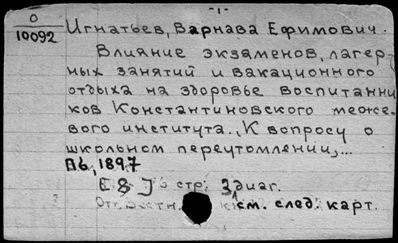 - 1 -
0
10092
Игнатьев, Варнава Ефимович.
Влияние экзаменов, лагер-
ных занятий и вакационного
отдыха на здоровье воспитанни
ков Константиновского меже-
вого института., К вопросу о
школьном переутомлении,...
1897
стр. 3 диаг.
см. след. карт.